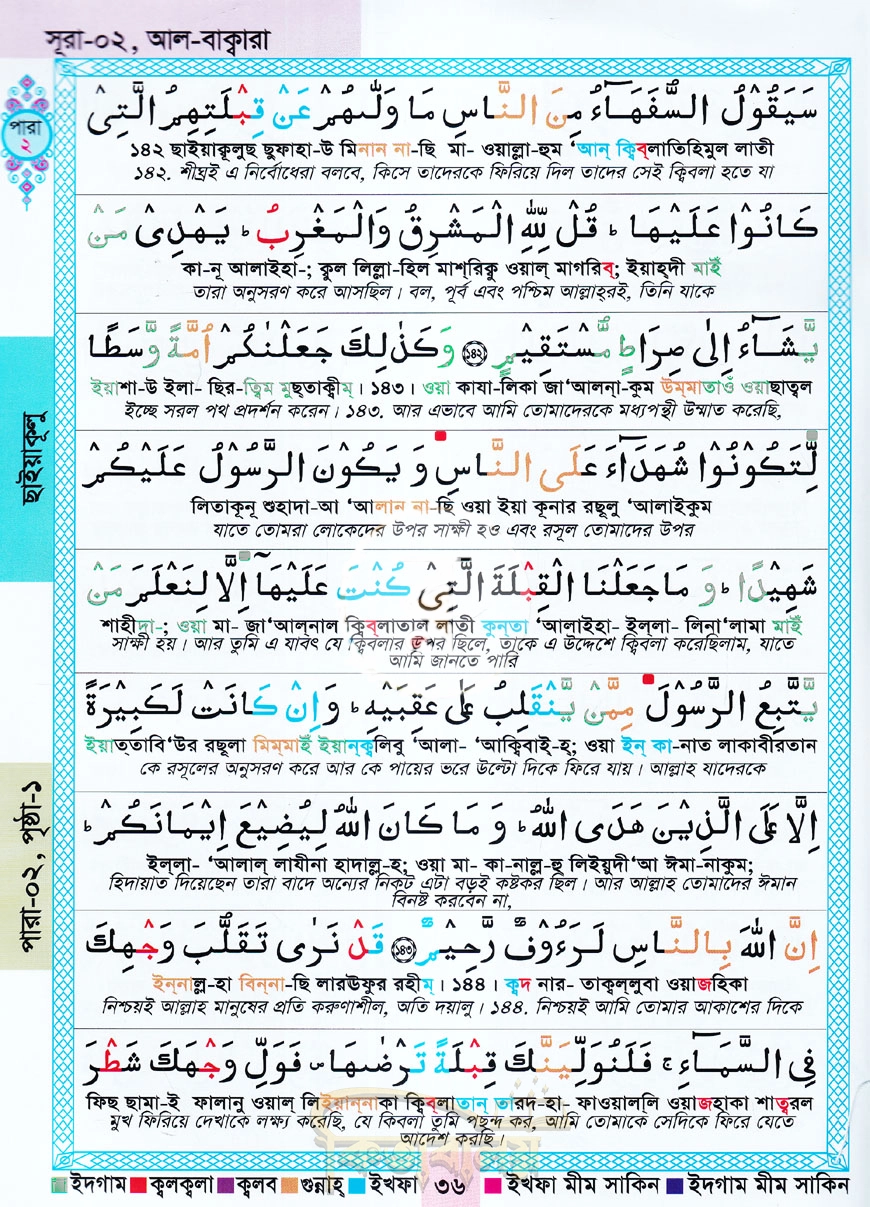 সূরা-০২, আল-বাক্বারা
পারা
২
سَيَقُوْلُ السُّفَهَآءُ مِنَ النَّاسِ مَا وَلّٰىهُمْ عَنْ قِبْلَتِهِمُ الَّتِىْ
১৪২ ছাইয়াক্বূলুছ ছুফাহা-উ মিনান না-ছি মা- ওয়াল্লা-হুম ‘আন্ ক্বিব্‌লাতিহিমুল লাতী
১৪২. শীঘ্রই এ নির্বোধেরা বলবে, কিসে তাদেরকে ফিরিয়ে দিল তাদের সেই ক্বিবলা হতে যা
كَانُوْا عَلَيْهَا ؕ قُلْ لِلّٰهِ الْمَشْرِقُ وَالْمَغْرِبُ ؕ يَهْدِىْ مَنْ
কা-নূ আলাইহা-; ক্বুল লিল্লা-হিল মাশ্‌রিক্বু ওয়াল্ মাগরিব্; ইয়াহ্‌দী মাইঁ
তারা অনুসরণ করে আসছিল। বল, পূর্ব এবং পশ্চিম আল্লাহ্‌রই, তিনি যাকে
يَّشَآءُ اِلٰى صِرَاطٍ مُّسْتَقِيْمٍ ۝١٤٢ وَكَذٰلِكَ جَعَلْنٰكُمْ اُمَّةً وَّسَطًا
ইয়াশা-উ ইলা- ছির-ত্বিম মুছতাক্বীম্। ১৪৩। ওয়া কাযা-লিকা জা‘আলনা-কুম উম্মাতাওঁ ওয়াছাত্বল
ইচ্ছে সরল পথ প্রদর্শন করেন। ১৪৩. আর এভাবে আমি তোমাদেরকে মধ্যপন্থী উম্মাত করেছি,
ছাইয়াকূলু
لِّتَكُوْنُوْا شُهَدَآءَ عَلَى النَّاسِ وَ يَكُوْنَ الرَّسُوْلُ عَلَيْكُمْ
লিতাকূনূ শুহাদা-আ ‘আলান না-ছি ওয়া ইয়া কূনার রছূলু ‘আলাইকুম
যাতে তোমরা লোকেদের উপর সাক্ষী হও এবং রসূল তোমাদের উপর
شَهِيْدًا ؕ وَ مَا جَعَلْنَا الْقِبْلَةَ الَّتِىْ كُنْتَ عَلَيْهَآ اِلَّا لِنَعْلَمَ مَنْ
শাহীদা-; ওয়া মা- জা‘আল্‌নাল ক্বিব্‌লাতাল লাতী কুন্‌তা ‘আলাইহা- ইল্‌লা- লিনা‘লামা মাইঁ
সাক্ষী হয়। আর তুমি এ যাবৎ যে ক্বিবলার উপর ছিলে, তাকে এ উদ্দেশে ক্বিবলা করেছিলাম, যাতে
আমি জানতে পারি
يَّتَّبِعُ الرَّسُوْلَ مِمَّنْ يَّنْقَلِبُ عَلٰى عَقِبَيْهِ ؕ وَاِنْ كَانَتْ لَكَبِيْرَةً
ইয়াত্‌তাবি‘উর রছূলা মিম্‌মাইঁ ইয়ান্‌ক্বলিবু ‘আলা- ‘আক্বিবাই-হ্; ওয়া ইন্ কা-নাত লাকাবীরতান
কে রসূলের অনুসরণ করে আর কে পায়ের ভরে উল্টো দিকে ফিরে যায়। আল্লাহ যাদেরকে
পারা-০২, পৃষ্ঠা-১
اِلَّا عَلَى الَّذِيْنَ هَدَى اللّٰهُ ؕ وَ مَا كَانَ اللّٰهُ لِيُضِيْعَ اِيْمَانَكُمْ ؕ
ইল্‌লা- ‘আলাল্ লাযীনা হাদাল্ল-হ; ওয়া মা- কা-নাল্ল-হু লিইয়ুদী‘আ ঈমা-নাকুম;
হিদায়াত দিয়েছেন তারা বাদে অন্যের নিকট এটা বড়ই কষ্টকর ছিল। আর আল্লাহ তোমাদের ঈমান
বিনষ্ট করবেন না,
اِنَّ اللّٰهَ بِالنَّاسِ لَرَءُوْفٌ رَّحِيْمٌ ۝١٤٣ قَدْ نَرٰى تَقَلُّبَ وَجْهِكَ
ইন্‌নাল্ল-হা বিন্‌না-ছি লারঊফুর রহীম্। ১৪৪। ক্বদ নার- তাক্বল্‌লুবা ওয়াজহিকা
নিশ্চয়ই আল্লাহ মানুষের প্রতি করুণাশীল, অতি দয়ালু। ১৪৪. নিশ্চয়ই আমি তোমার আকাশের দিকে
فِى السَّمَآءِ ۚ فَلَنُوَلِّيَنَّكَ قِبْلَةً تَرْضٰىهَا ۪ فَوَلِّ وَجْهَكَ شَطْرَ
ফিছ ছামা-ই ফালানু ওয়াল্ লিইয়ান্‌নাকা ক্বিব্‌লাতান্ তারদ-হা- ফাওয়াল্‌লি ওয়াজহাকা শাত্বরল
মুখ ফিরিয়ে দেখাকে লক্ষ্য করেছি, যে কিবলা তুমি পছন্দ কর, আমি তোমাকে সেদিকে ফিরে যেতে
আদেশ করছি।
ইদগাম ক্বলক্বলা ক্বলব গুন্নাহ্ ইখফা ৩৬ ইখফা মীম সাকিন ইদগাম মীম সাকিন